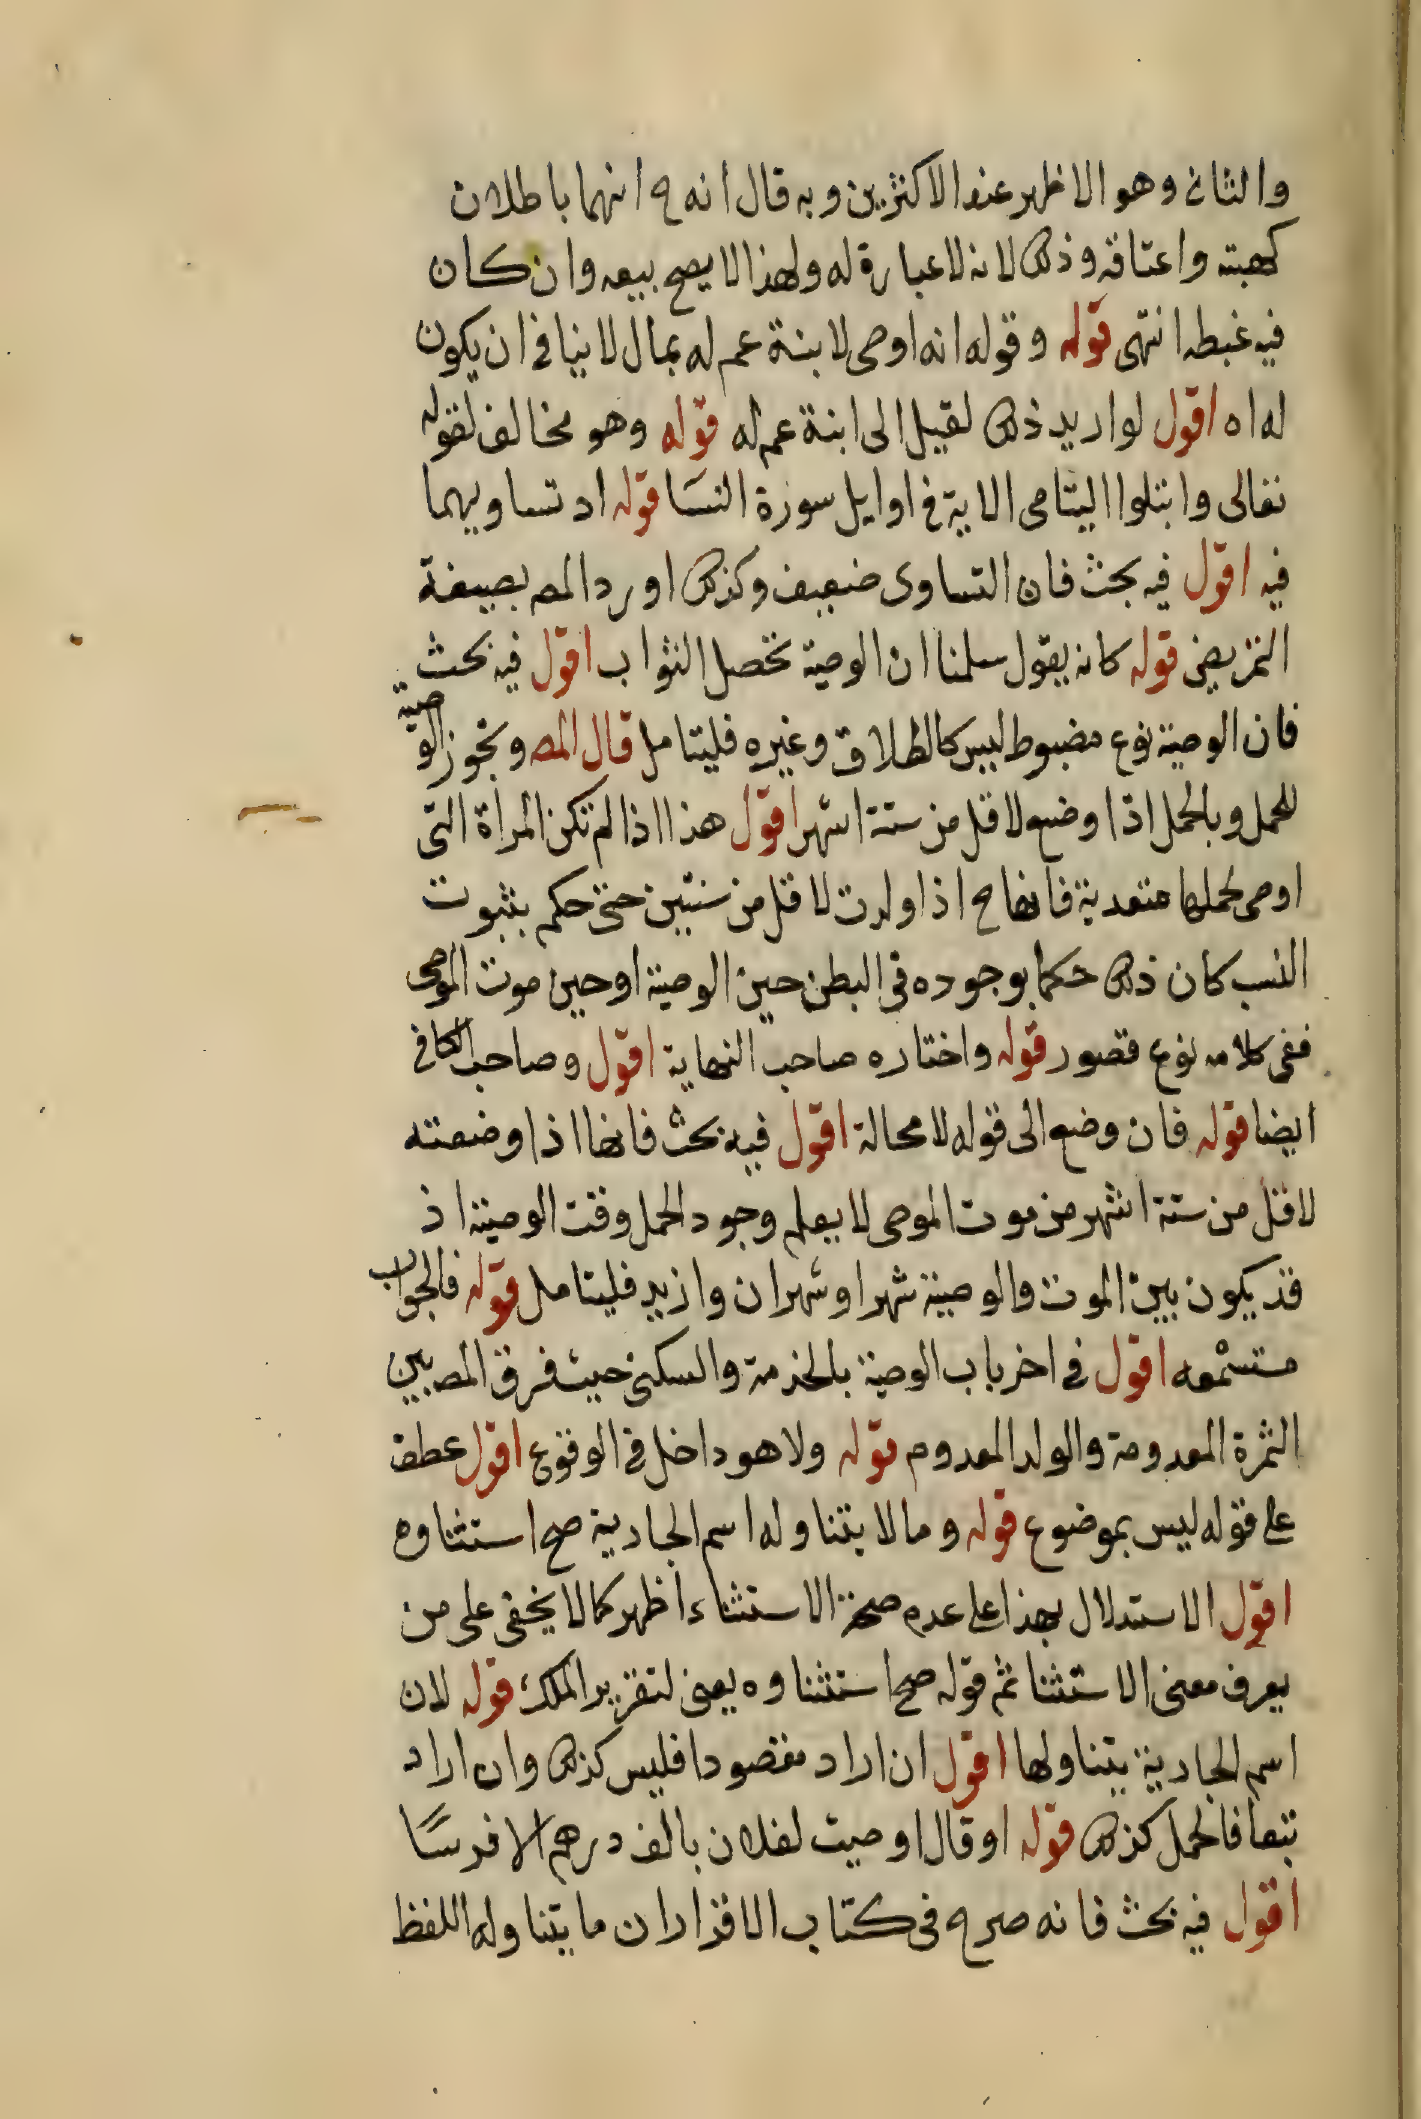 والثانى وهو الاظهر عند الاكثرين وبه قال انه ح انهما باطلان
كهبته واعتاقه وذلك لانه لا عبارة له ولهذا لا يصح بيعه وان كان
فيه غبطه انتهى قوله وقوله انه اوصى لابنة عم له بمال لا ينافى ان يكون
له اه اقول لو اريد ذلك لقيل الى ابنة عم له قوله وهو مخالف لقوله
تعالى وابتلوا اليتامى الاية فى اوايل سورة النسا قوله اد تساويهما
فيه اقول فيه بحث فان التساوى ضعيف وكذلك اورد المص بصيغة
التمريض قوله كانه يقول سلمنا ان الوصية تحصل الثواب اقول فيه بحث
فان الوصية نوع مضبوط ليس كالطلاق وغيره فليتامل قال المص وتجوز الوصية
للحمل وبالحمل اذا وضع لاقل من ستة اشهر اقول هذا اذا لم تكن المرأة التى
اوصى لحملها معتدية فانها ح اذا ولدت لاقل من سنتين حتى حكم بثبوت
النسب كان ذلك حكما بوجوده فى البطن حين الوصية او حين موت الموصى
ففى كلامه نوع قصور قوله واختاره صاحب النهاية اقول وصاحب الكافى
ايضا قوله فان وضع الى قوله لا محالة اقول فيه بحث فانها اذا وضعته
لاقل من ستة اشهر من موت الموصى لا يعلم وجود الحمل وقت الوصية اذ
قد يكون بين الموت والوصية شهر او شهران وازيد فليتامل قوله فالجواب
مستسمعه اقول فى اخر باب الوصية بالخدمة والسكنى حيث فرق المص بين
الثمرة المعدومة والولد المعدوم قوله ولا هو داخل فى الوقوع اقول عطف
على قوله ليس بموضوع قوله وما لا يتناوله اسم الجارية صح استثناوه
اقول الاستدلال بهذا على عدم صحة الاستثناء اظهر كما لا يخفى على من
يعرف معنى الاستثنا ثم قوله صح استثناوه يعنى لتقرير الملك قوله لان
اسم الجارية يتناولها اقول ان اراد مقصودا فليس كذلك وان اراد
تبعا فالحمل كذلك قوله او قال اوصيت لفلان بالف درهم الا فرسًا
اقول فيه بحث فانه صرح فى كتاب الاقرار ان ما يتناوله اللفظ